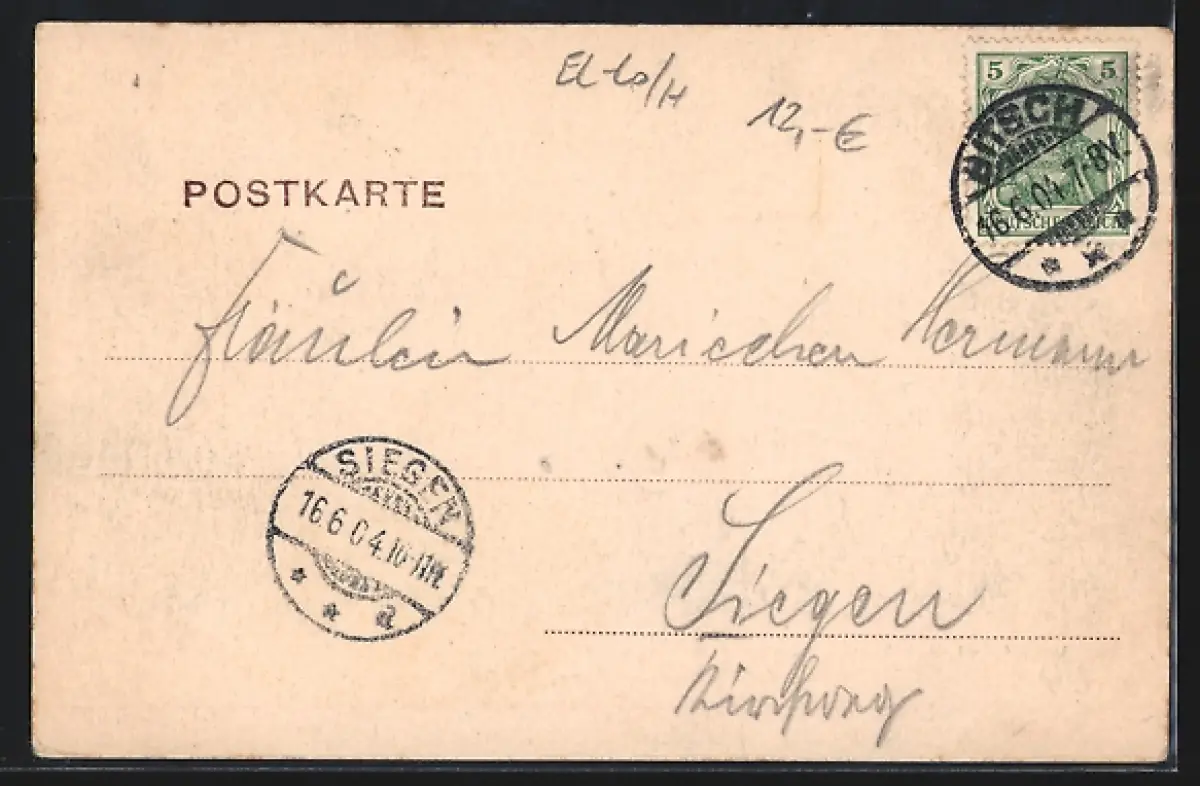 El-Lo/H
12,-€
5 5
BITSCH
16.6.04.7-8V.
POSTKARTE
Fräulein Mariechen Hermann
SIEGEN
16.6.04.10-11N.
* * d
Siegen
Kirchweg